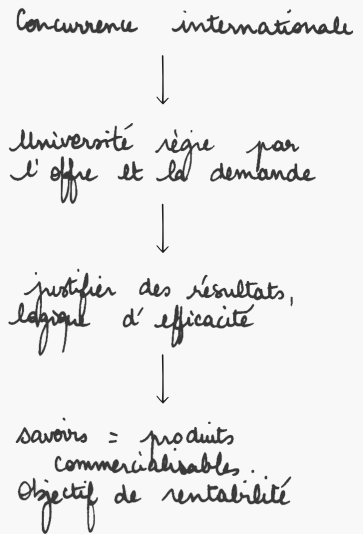 Concurrence internationale
Université règie par
l'offre et la demande
justifier des résultats,
logique d'efficacité
savoirs = produits
commercialisables.
Objectif de rentabilité